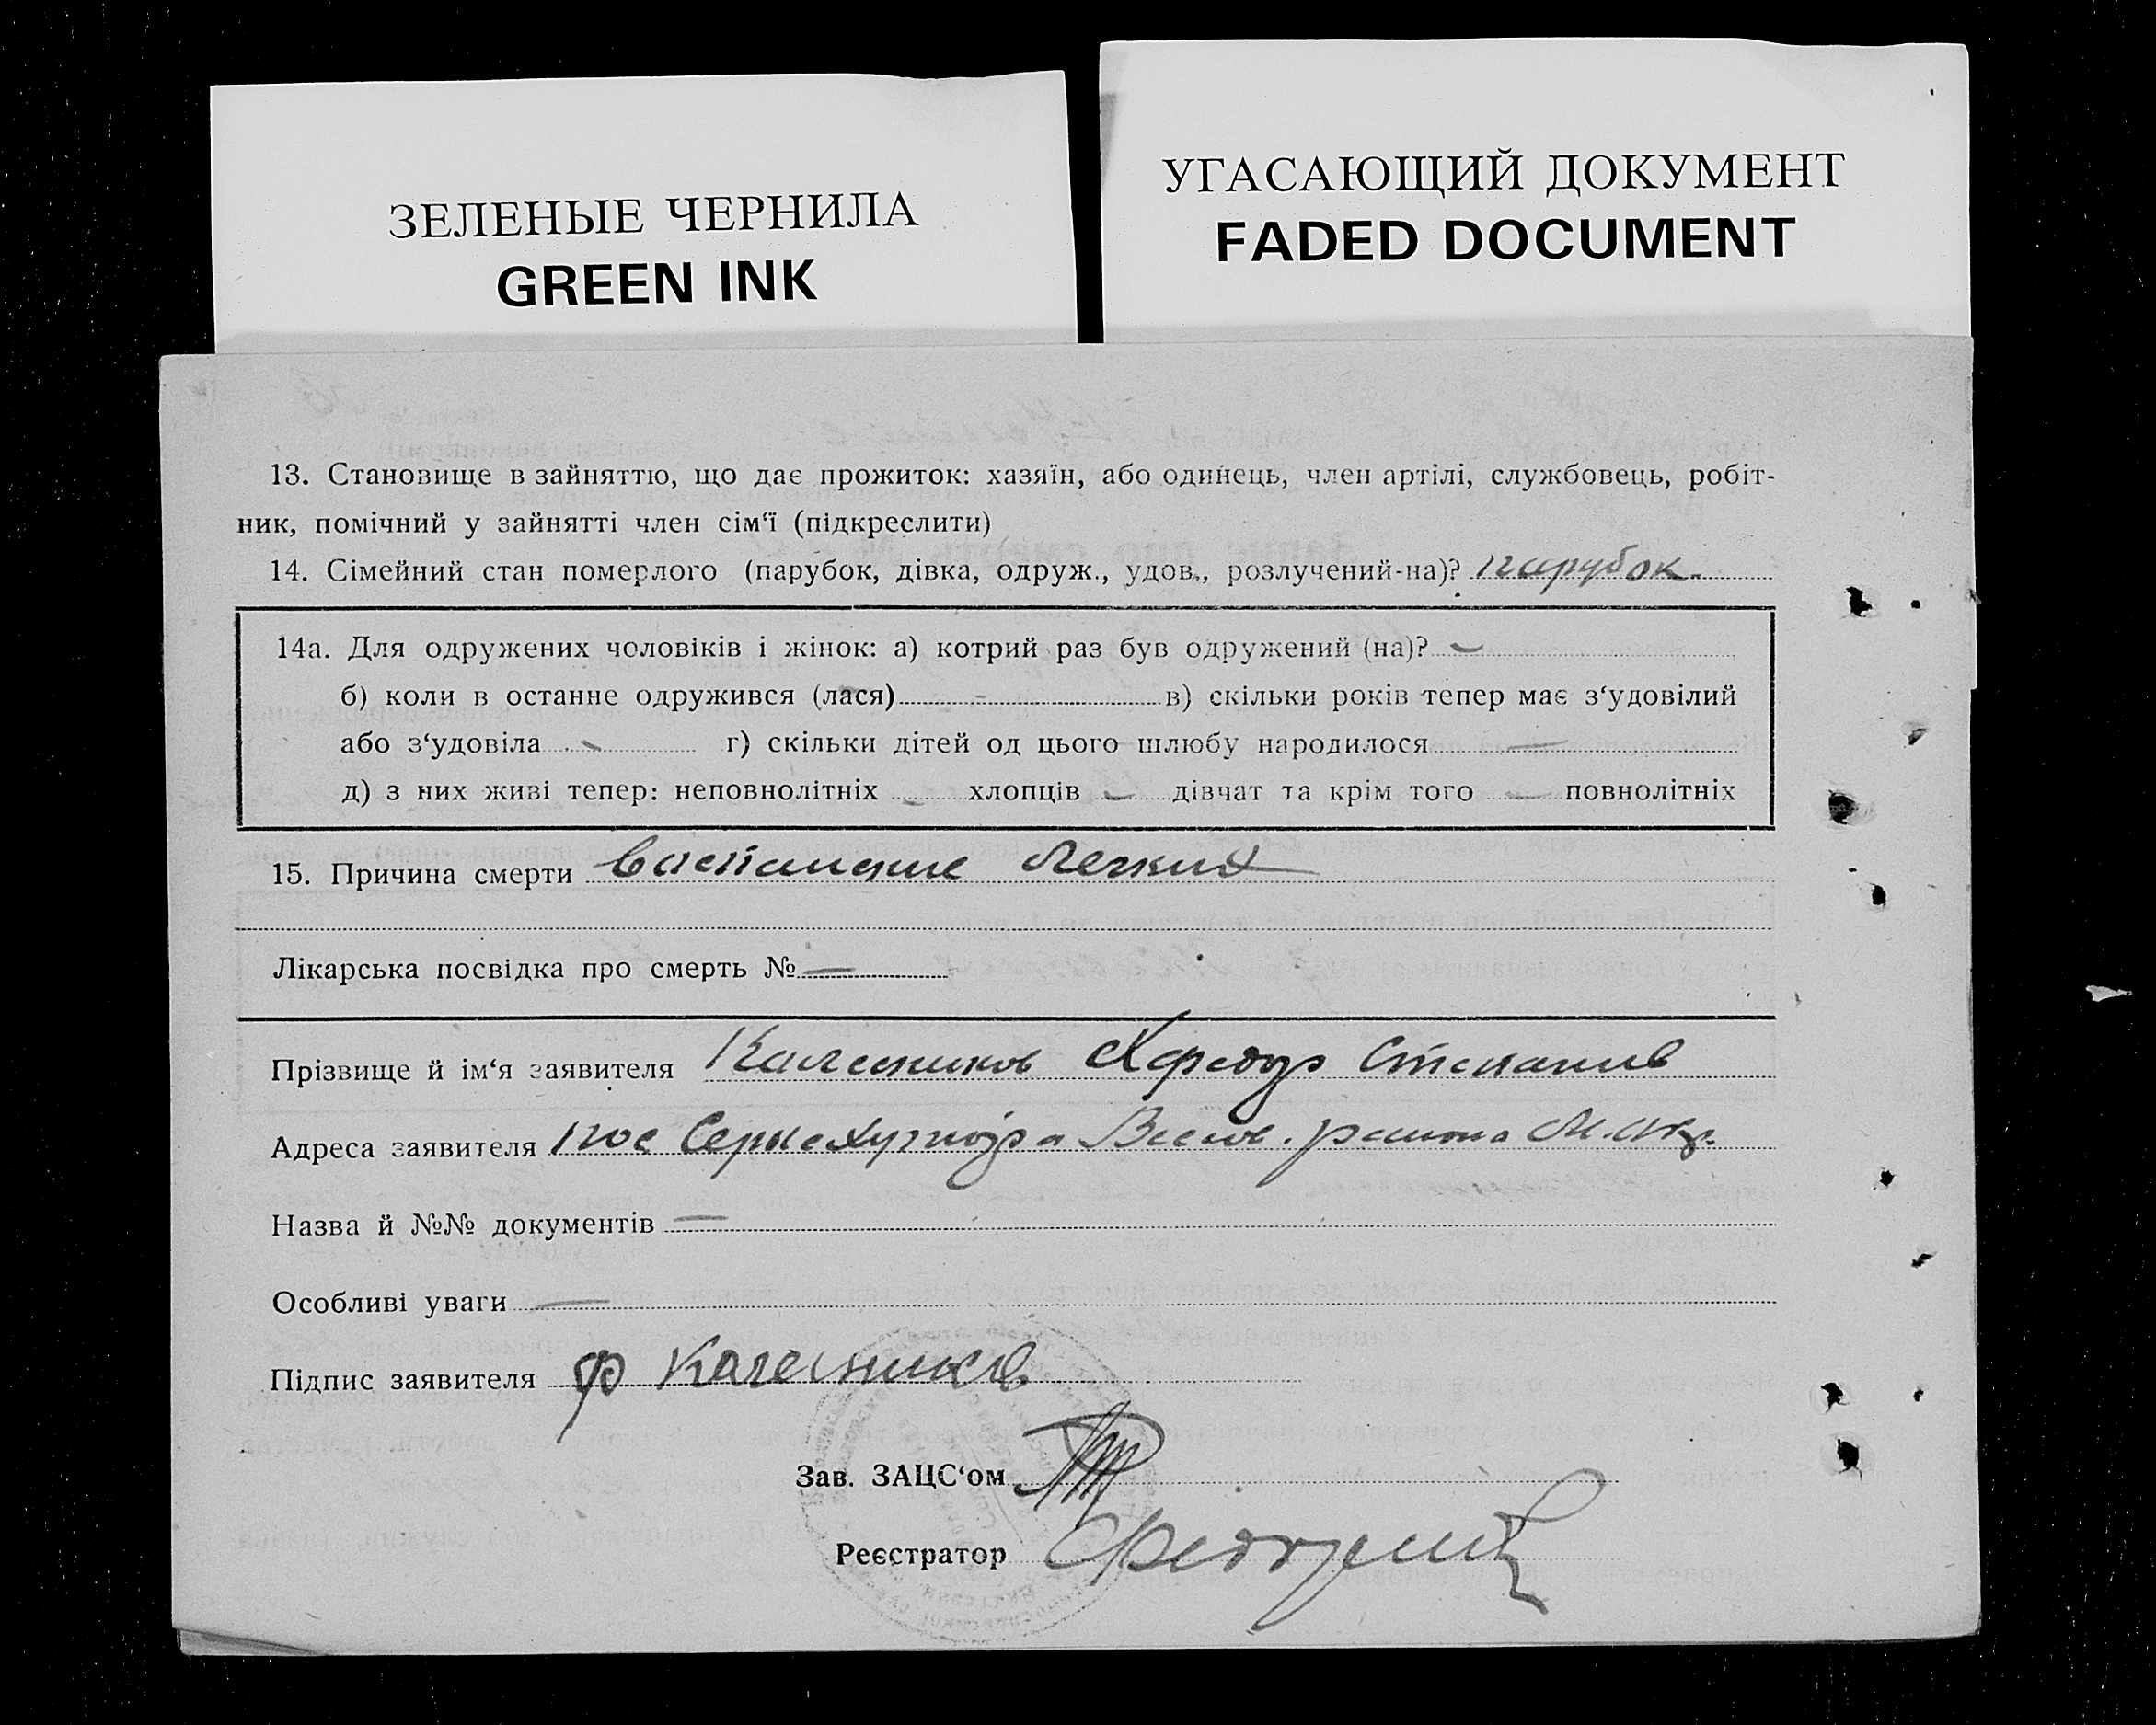 ЗЕЛЕНЫЕ ЧЕРНИЛА
GREEN INK
УГАСАЮЩИЙ ДОКУМЕНТ
FADED DOCUMENT
13. Становище в зайняттю, що дає прожиток: хазяїн, або одинець, член артілі, службовець, робіт-
ник, помічний у зайнятті член сім‘ї (підкреслити)
14. Сімейний стан померлого (парубок, дівка, одруж., удов., розлучений-на)? парубок
14а. Для одружених чоловіків і жінок: а) котрий раз був одружений (на)? —
б) коли в останнє одружився (лася) - в) скільки років тепер має з‘удовілий
або з‘удовіла - г) скільки дітей од цього шлюбу народилося —
д) з них живі тепер: неповнолітніх - хлопців - дівчат та крім того - повнолітніх
15. Причина смерти Легких
Лікарська посвідка про смерть № —
Прізвище й ім‘я заявителя Калесников
Адреса заявителя района
Назва й №№ документів —
Особливі уваги —
Підпис заявителя Ф Калесников
Зав. ЗАЦС‘ом
Реєстратор